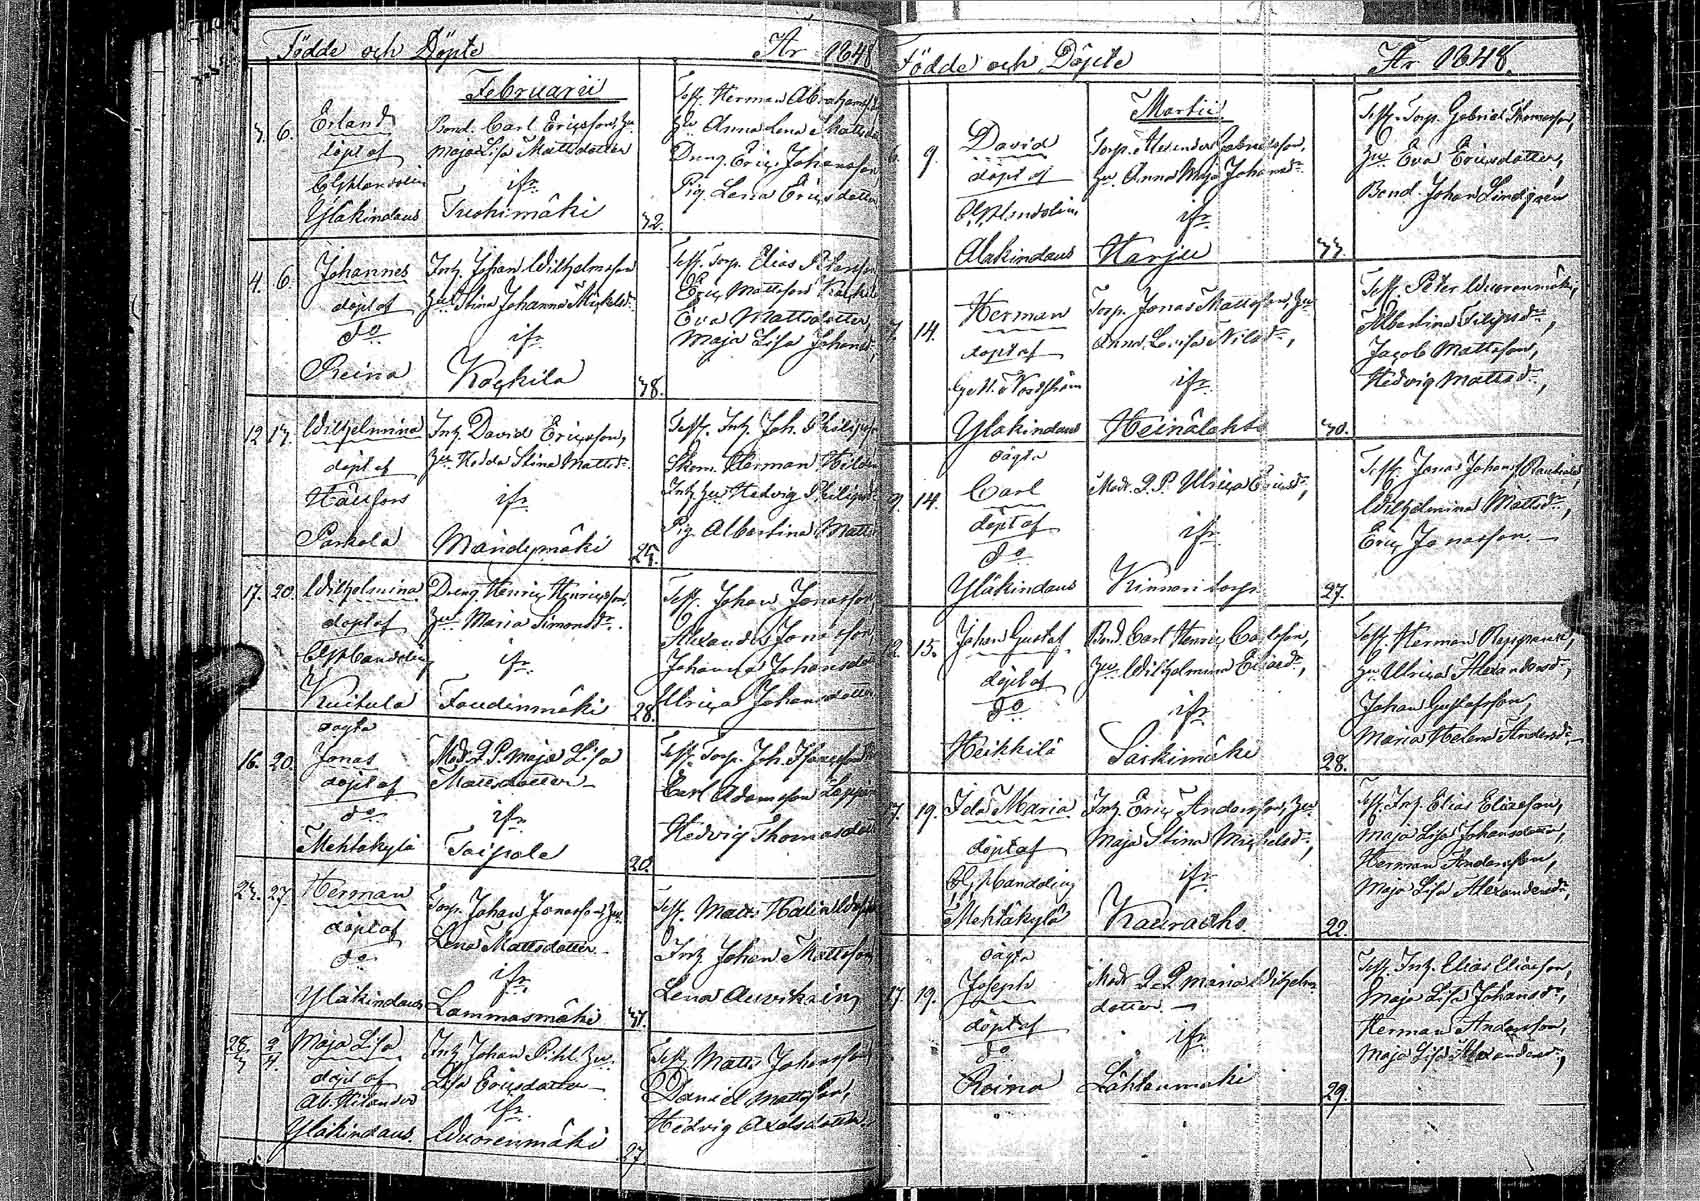 Födde och Döpte År 1848
Februarii
3. 6. Erland
döpt af
Yläkindaus
Bond. Carl Ericsson, hu
Maja Lisa Mattsdotter
ifr
Tuohimäki
32.
Test. Herman Abrahams
hu Anna Lena Matts
Dreng. Eric Johansson,
Pig. Lena Ericsdotter
4. 6. Johannes
döpt af
do
Reina
Inh. Johan Wilhelmsson
hu Stina Johanna Michelsdr
ifr
38.
Test. Torp. Elias
Eric Mattsson
Eva Mattsdotter,
Maja Lisa Johansd,
12 13. Wilhelmina
döpt af
Hällfors
Parkola
Inh. David Ericsson,
hu Hedda Stina Mattsdr
ifr
25.
Test. Inh. Joh. Philipsson
Skom. Herman
Inh. hu Hedvig Philipsdr
Pig. Albertina Matts
17. 20. Wilhelmina
döpt af
Kuitula
Dreng Henric Henricsson,
hu Maria Simonsdr.
ifr
28.
Test. Johan Jonasson,
Alexander Jonasson,
Johanna Johansdotter
Ulrica Johansdotter
16. 20. oägta
Jonas
döpt af
do
Mehtäkylä
Mod. Q.P. Maja Lisa
Mattsdotter
ifr
Taipale
20.
Test. Torp. Joh.
Carl Adamsson
Hedvig Thomasdotter
23. 27. Herman
döpt af
do
Yläkindaus
Torp. Johan Jonasson, hu
Lena Mattsdotter
ifr
Lammasmäki
Test. Matts
Inh. Johan Mattsson
Lena
28/3 2/4 Maja Lisa
döpt af
Ab. Hilander
Yläkindaus
Inh. Johan Pihl, hu
Lisa Ericsdotter
ifr
Wuorenmäki
27.
Test. Matts Johansson
Daniel Mattsson,
Hedvig Axelsdotter
Födde och Döpte År 1848.
Martii
6. 9. David
döpt af
Alakindaus
Torp. Alexander Gabrielsson,
hu Anna Maja Johansdr
ifr
Harju
33.
Test. Torp. Gabriel Thomasson,
hu Eva Ericsdotter,
Bond. Johan Lindgren
7. 14. Herman
döpt af
Nordström
Yläkindaus
Torp. Jonas Mattsson, hu
Anna Lovisa Nilsdr,
ifr
Heinälahti
30.
Test. Peter Wuorenmäki,
Albertina Filipsdr,
Jacob Mattsson,
Hedvig Mattsdr,
9. 14. oägta
Carl
döpt af
do
Yläkindaus
Mod. Q.P. Ulrica Ericsdr,
ifr
27.
Test. Jonas Johans
Wilhelmina Mattsdr,
Eric Jonasson
12. 15. Johan Gustaf
döpt af
do
Heikkilä
Bond. Carl Henric Carlsson,
hu Wilhelmina Eliasdr,
ifr
Särkimäki
28.
Test. Herman
hu Ulrica Alexandersdr,
Johan Gustafsson,
Maria Helena Andersdr
17. 19. Ida Maria
döpt af
Mehtäkylä
Inh. Eric Andersson, hu
Maja Stina Michelsdr,
ifr
Kauraaho
22.
Test. Inh. Elias Eliasson,
Maja Lisa Johansdotter,
Herman Andersson,
Maja Lisa Alexandersdr,
17. 19. oägta
Joseph
döpt af
do
Reina
Modr. Q.P. Maria Wilhelms
dotter
ifr
29.
Test. Inh. Elias Eliasson,
Maja Lisa Johansdr,
Herman Andersson,
Maja Lisa Alexandersdr,